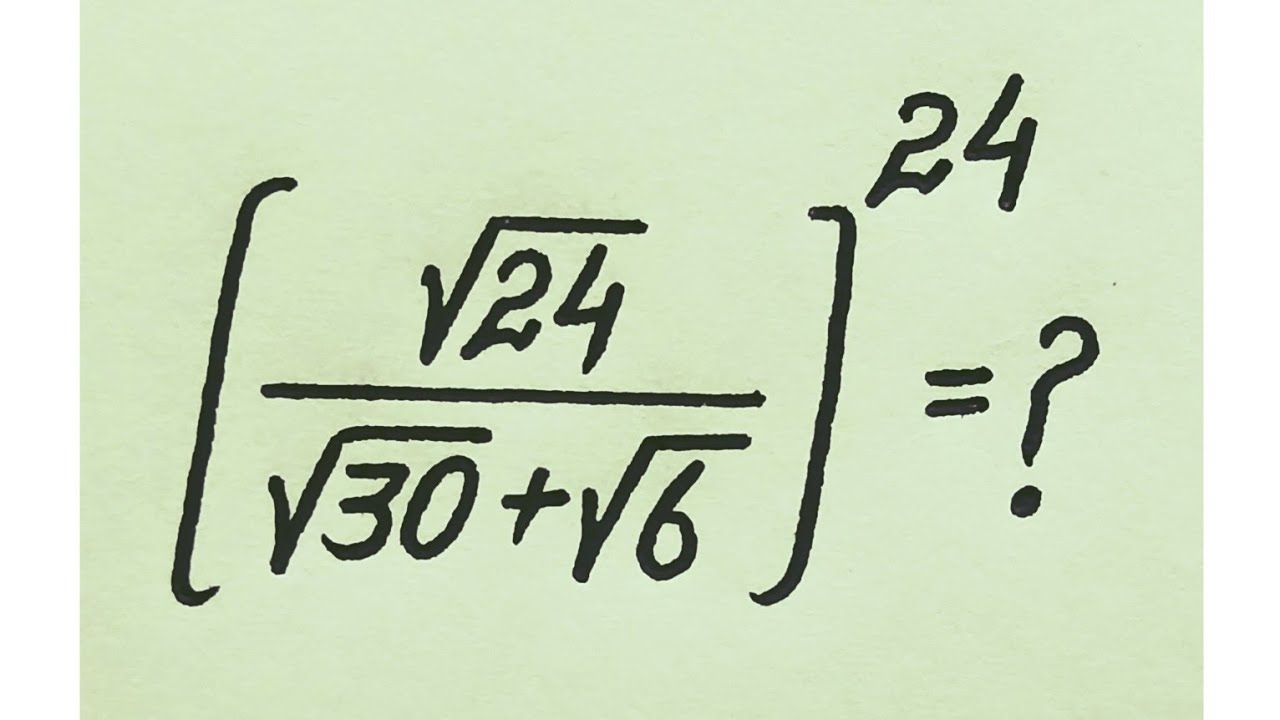 [√24 / (√30+√6)]^24 = ?